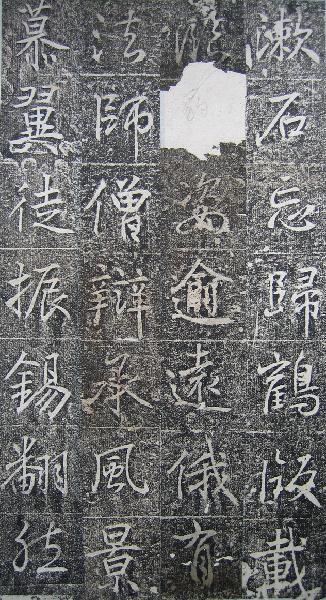 漱石忘歸鶴飯載
姿逾遠俄有
法師僧辯承風景
慕翼徒振錫翻然